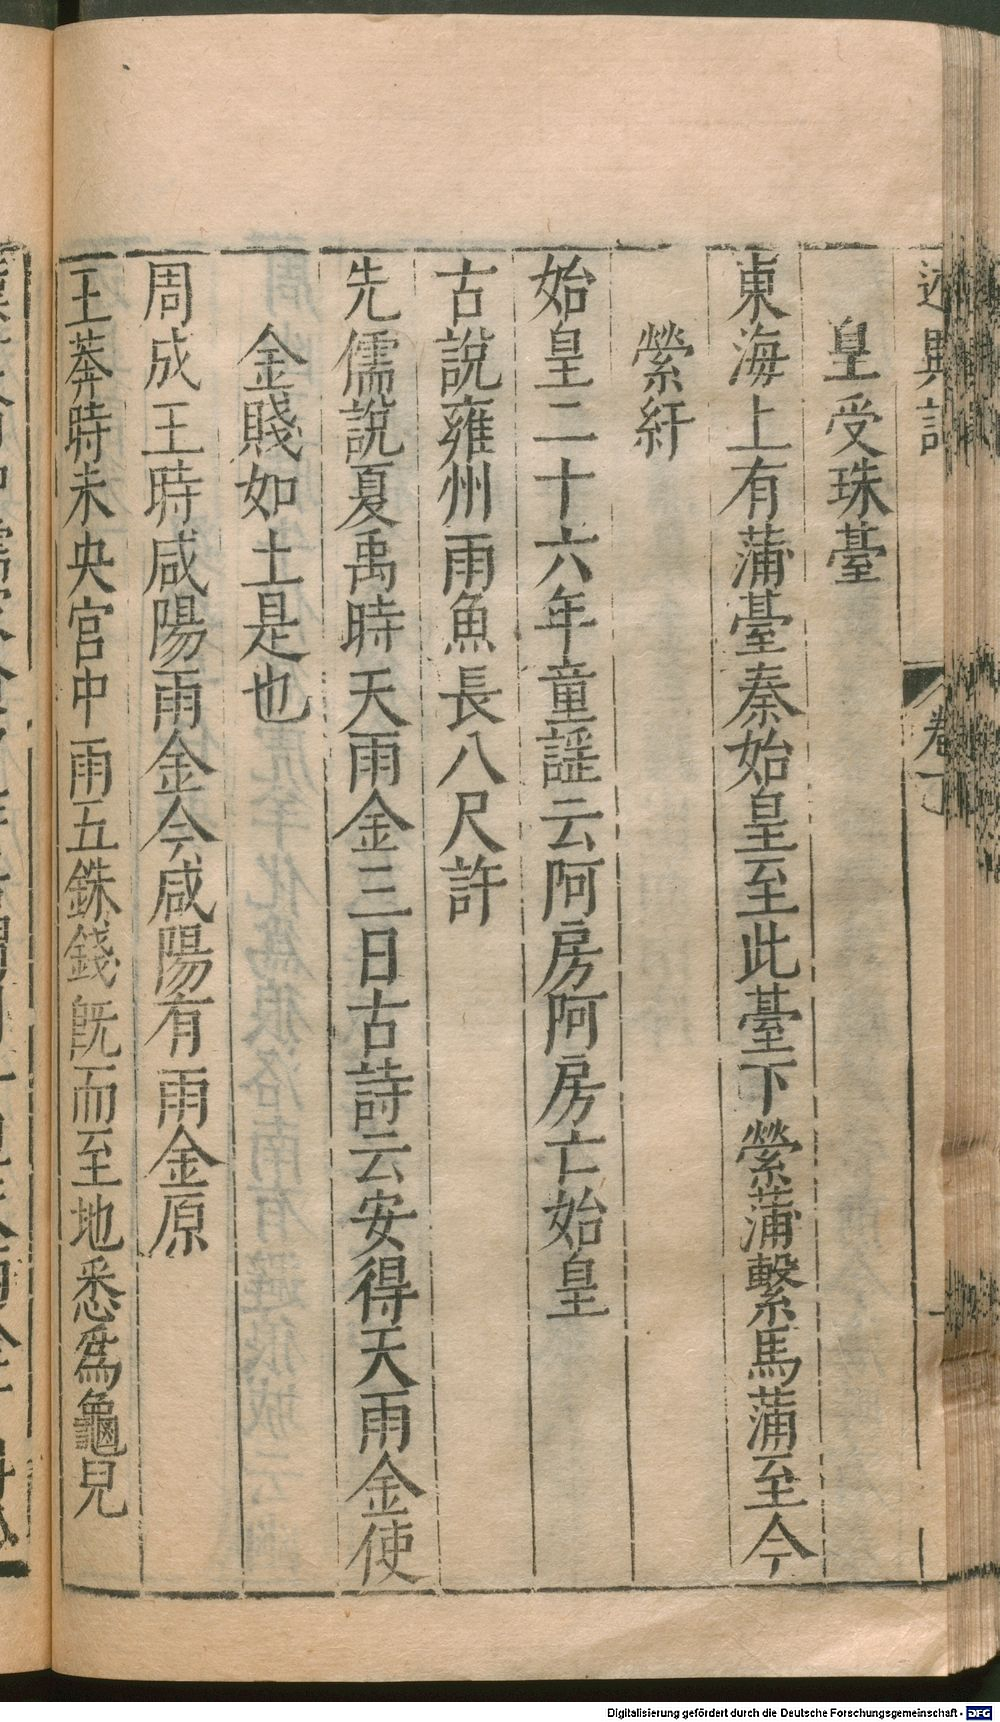 述異記
卷下
皇受珠臺
東海上有蒲臺秦始皇至此臺下縈蒲繫馬蒲至今
縈紆
始皇二十六年童謡云阿房阿房亡始皇
古說雍州雨魚長八尺許
先儒說夏禹時天雨金三日古詩云安得天雨金使
金賤如土是也
周成王時咸陽雨金今咸陽有雨金原
王莽時未央宫中雨五銖錢旣而至地悉爲龜兒
Digitalisierung gefördert durch die Deutsche Forschungsgemeinschaft - DFG